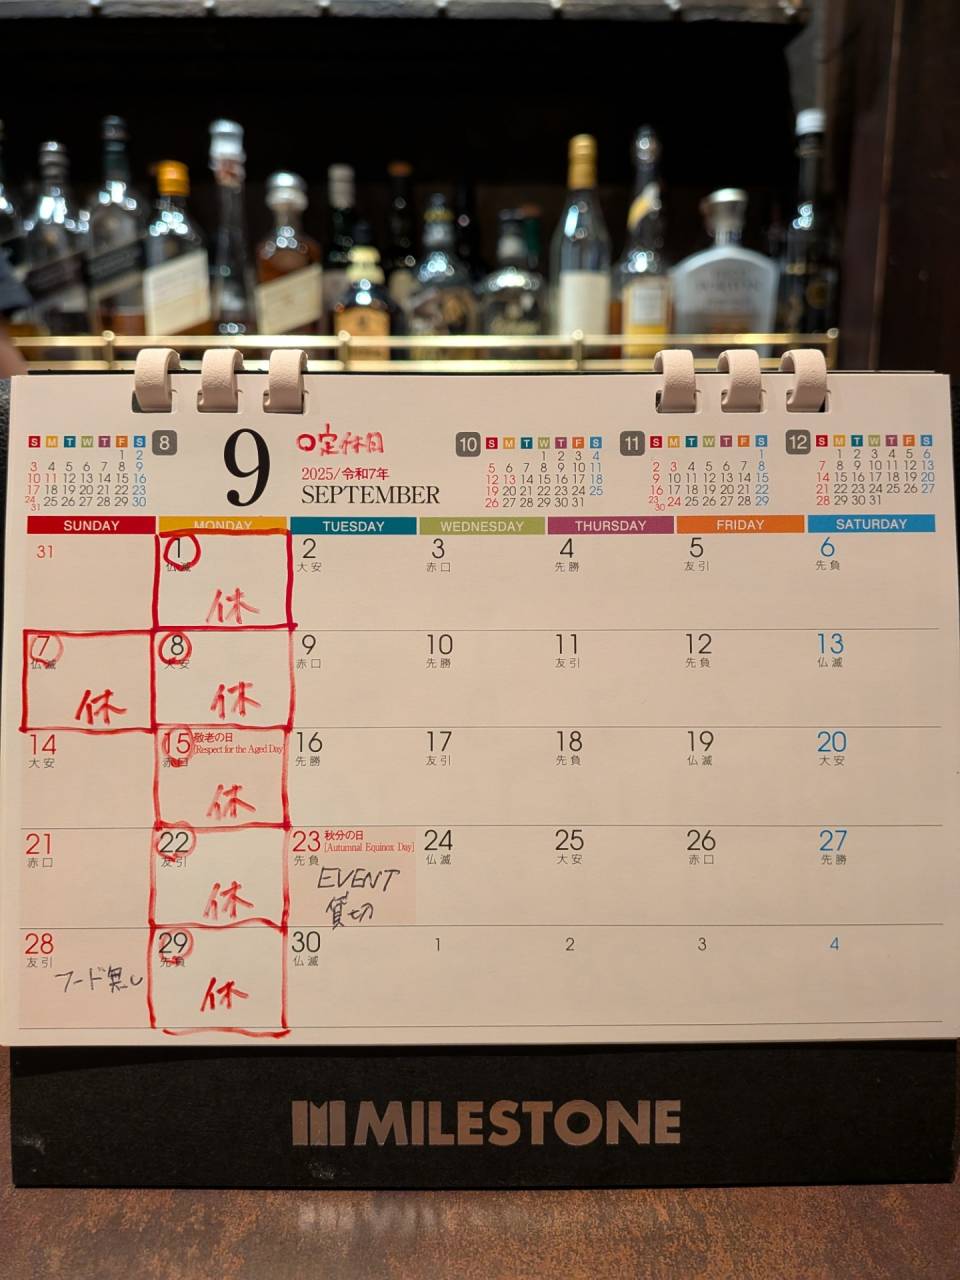 S M T W T F S 8
1 2
3 4 5 6 7 8 9
10 11 12 13 14 15 16
17 18 19 20 21 22 23
24 25 26 27 28 29 30
31
9
〇定休日
2025/令和7年
SEPTEMBER
10 S M T W T F S
1 2 3 4
5 6 7 8 9 10 11
12 13 14 15 16 17 18
19 20 21 22 23 24 25
26 27 28 29 30 31
11 S M T W T F S
1
2 3 4 5 6 7 8
9 10 11 12 13 14 15
16 17 18 19 20 21 22
23 24 25 26 27 28 29
30
12 S M T W T F S
1 2 3 4 5 6
7 8 9 10 11 12 13
14 15 16 17 18 19 20
21 22 23 24 25 26 27
28 29 30 31
SUNDAY MONDAY TUESDAY WEDNESDAY THURSDAY FRIDAY SATURDAY
31 1 2 3 4 5 6
仏滅 大安 赤口 先勝 友引 先負
休
7 8 9 10 11 12 13
仏滅 大安 赤口 先勝 友引 先負 仏滅
休 休
14 15 敬老の日 [Respect for the Aged Day 16 17 18 19 20
大安 赤口 先勝 友引 先負 仏滅 大安
休
21 22 23 秋分の日 [Autumnal Equinox Day] 24 25 26 27
赤口 友引 先負 仏滅 大安 赤口 先勝
休 EVENT
貸切
28 29 30 1 2 3 4
友引 先負 仏滅
フード無し 休
MILESTONE